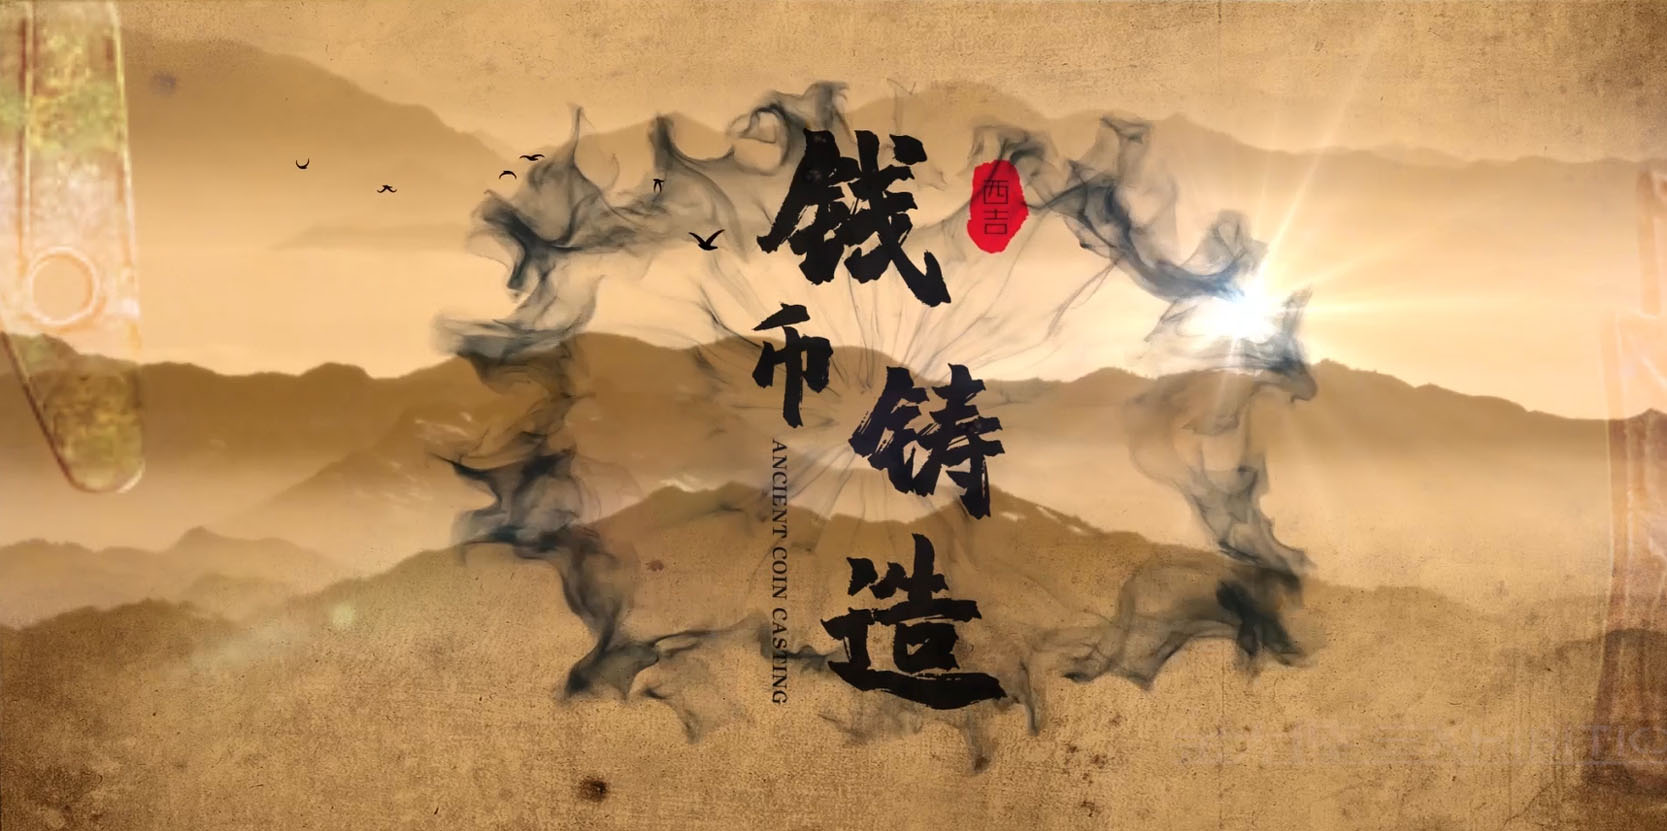 钱币铸造
西吉
ANCIENT COIN CASTING